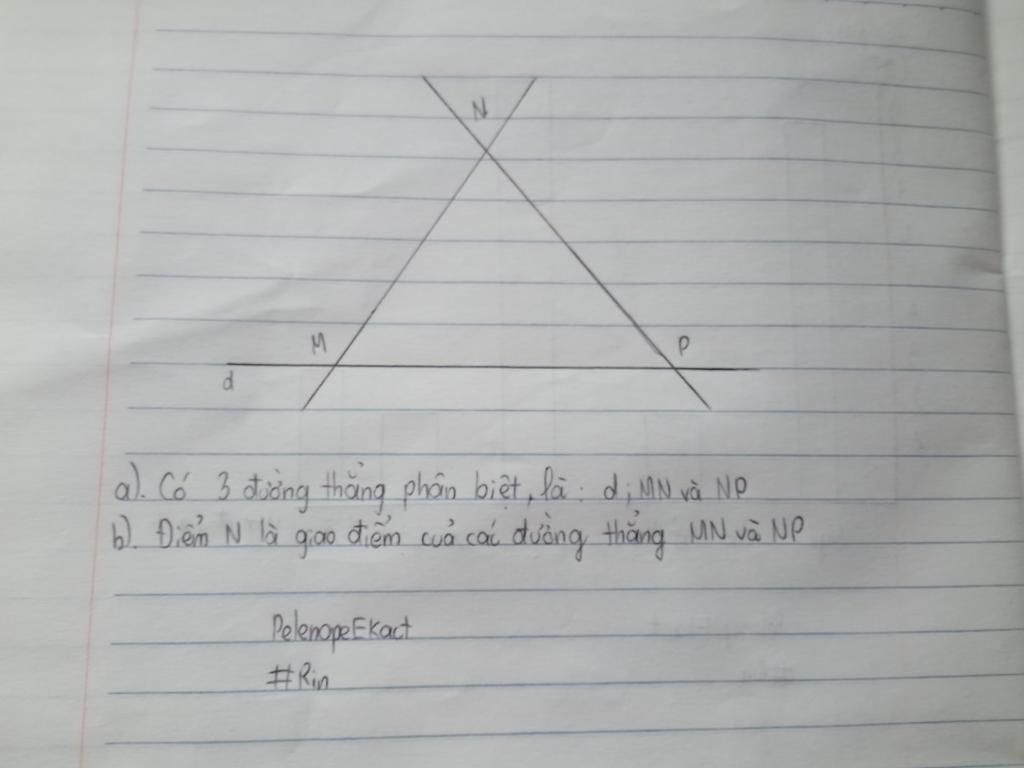 N
M
P
d
a). Có 3 đường thẳng phân biệt, là: d; MN và NP
b). Điểm N là giao điểm của các đường thẳng MN và NP
PelenopeEKact
#Rin